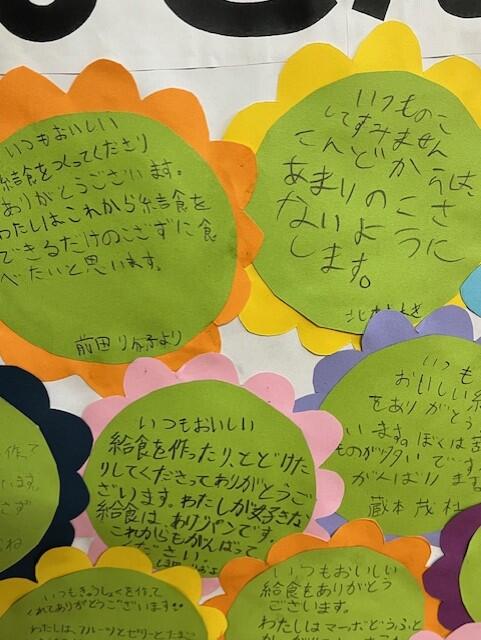 いつもおいしい
給食をつくってくださり
ありがとうございます。
わたしはこれから給食を
できるだけのこさずに食
べたいと思います。
前田り
より
いつものこ
してすみません
こんどからは、
あまりのこさ
ないように
します。
いつも
おいしい給
をありがとう
います。ぼくは
ものが多いです
がんばりま
蔵本茂
いつもおいしい
給食を作ったり、とどけた
りしてくださってありがとうご
ざいます。わたしが好きな
給食は、あげパンです。
これからもがんばって
ください。
作って
います。
さず
いつもきゅうしょくを作って
くれてありがとうございます!!
わたしは、フルーツとゼリーと
いつもおいしい
給食をありがとう
ございます。
わたしはマーボどうふと